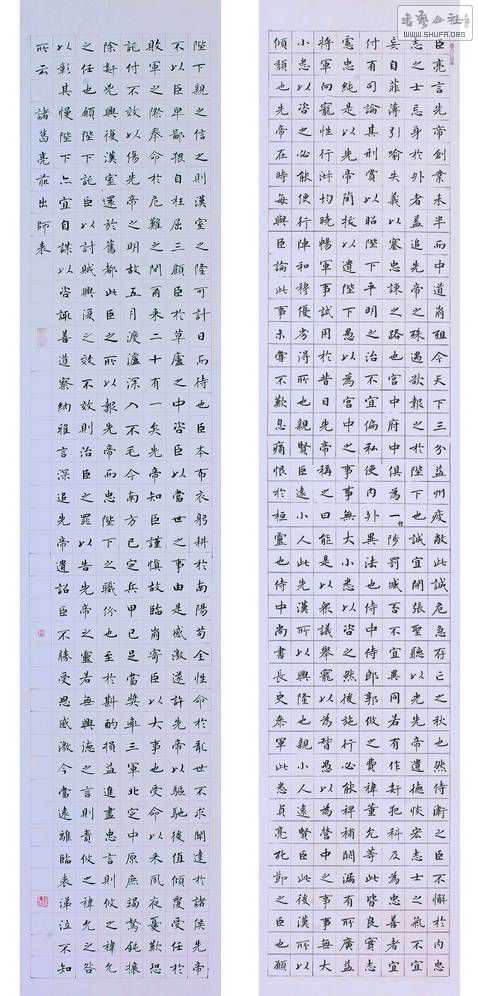 臣亮言先帝創業未半而中道崩殂今天下三分益州疲敝此誠危急存亡之秋也然侍衛之臣不懈於內忠
志之士忘身於外者蓋追先帝之殊遇欲報之於陛下也誠宜開張聖聽以光先帝遺德恢宏志士之氣不宜
妄自菲薄引喻失義以塞忠諫之路也宮中府中俱為一體陟罰臧否不宜異同若有作奸犯科及為忠善者宜
付有司論其刑賞以昭陛下平明之治不宜偏私使內外異法也侍中侍郎郭攸之費禕董允等皆良實志
慮忠純是以先帝簡拔以遺陛下愚以為宮中之事事無大小悉以咨之然後施行必能裨補闕漏有所廣益
將軍向寵性行淑均曉暢軍事試用於昔日先帝稱之曰能是以眾議舉寵為督愚以為營中之事事無大
小悉以咨之必能使行陣和穆優劣得所也親賢臣遠小人此先漢所以興隆也親小人遠賢臣此後漢所以
傾頹也先帝在時每與臣論此事未嘗不歎息痛恨於桓靈也侍中尚書長史參軍此悉貞亮死節之臣也願
陛下親之信之則漢室之隆可計日而待也臣本布衣躬耕於南陽苟全性命於亂世不求聞達於諸侯先帝
不以臣卑鄙猥自枉屈三顧臣於草廬之中咨臣以當世之事由是感激遂許先帝以驅馳後值傾覆受任於
敗軍之際奉命於危難之間爾來二十有一矣先帝知臣謹慎故臨崩寄臣以大事也受命以來夙夜憂歎恐
託付不效以傷先帝之明故五月渡瀘深入不毛今南方已定兵甲已足當獎率三軍北定中原庶竭駑鈍攘
除奸凶興復漢室還於舊都此臣所以報先帝而忠陛下之職份也至於斟酌損益進盡忠言則攸之禕允
之任也願陛下託臣以討賊興復之效不效則治臣之罪以告先帝之靈若無興德之言則責攸之禕允之咎
以彰其慢陛下亦宜自謀以咨諏善道察納雅言深追先帝遺詔臣不勝受恩感激今當遠離臨表涕泣不知
所云 諸葛亮前出師表
WWW.SHUFA.ORG